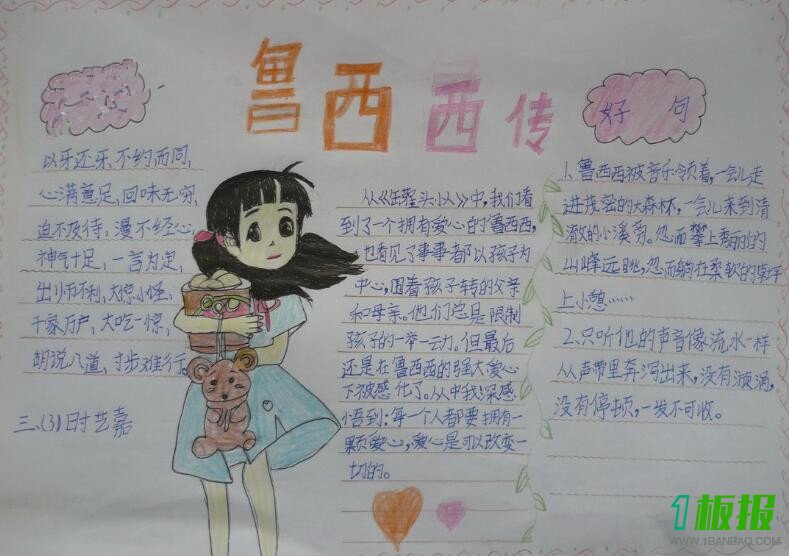 鲁西西传
以牙还牙、不约而同、
心满意足、回味无穷、
迫不及待、漫不经心、
神气十足、一言为定、
出师不利、大惊小怪、
千家万户、大吃一惊、
胡说八道、寸步难行。
三、(3)时艺嘉
从《罐头小人》中，我们看
到了一个拥有爱心的鲁西西，
也看见了事事都以孩子为
中心，围着孩子转的父亲
和母亲。他们总是限制
孩子的一举一动。但最后
还是在鲁西西的强大爱心
下被感化了。从中我深感
悟到：每一个人都要拥有一
颗爱心，爱心是可以改变一
切的。
好 句
1、鲁西西被音乐领着，一会儿走
进茂密的大森林，一会儿来到清
澈的小溪旁。忽而攀上秀丽的
山峰远眺，忽而躺在柔软的草坪
上小憩……
2、只听他的声音像流水一样
从声带里奔泻出来，没有漩涡，
没有停顿，一发不可收。
1板报
WWW.1BANBAO.COM